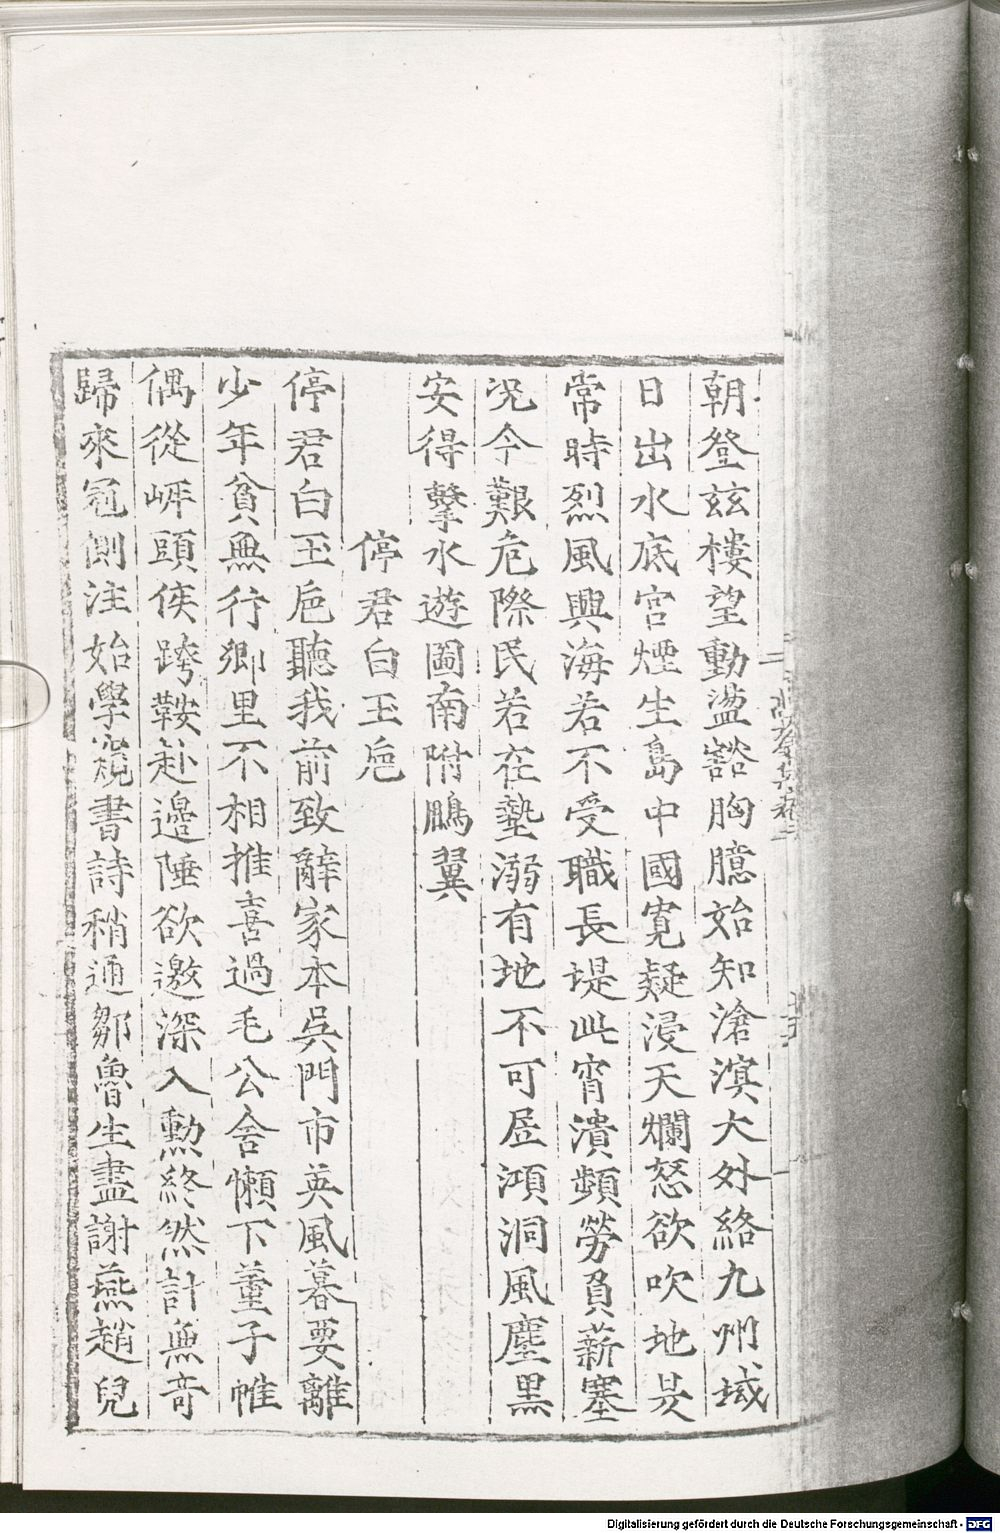 朝登茲樓望動盪豁胸臆始知滄溟大外絡九州域
日出水底宮煙生島中國寬疑浸天爛怒欲吹地㫷
常時烈風興海若不受職長堤此宵潰頻勞負薪塞
況今艱危際民若在墊溺有地不可居澒洞風塵黑
安得擊水遊圖南附鵬翼
停君白玉卮
停君白玉卮聽我前致辭家本吳門市英風慕要離
少年貧無行鄉里不相推喜過毛公舍懶下董子帷
偶從岍頭侯跨鞍赴邊陲欲邀深入勲終然計無奇
歸來冠側注始學窺書詩稍通鄒魯生盡謝燕趙兒
Digitalisierung gefördert durch die Deutsche Forschungsgemeinschaft - DFG